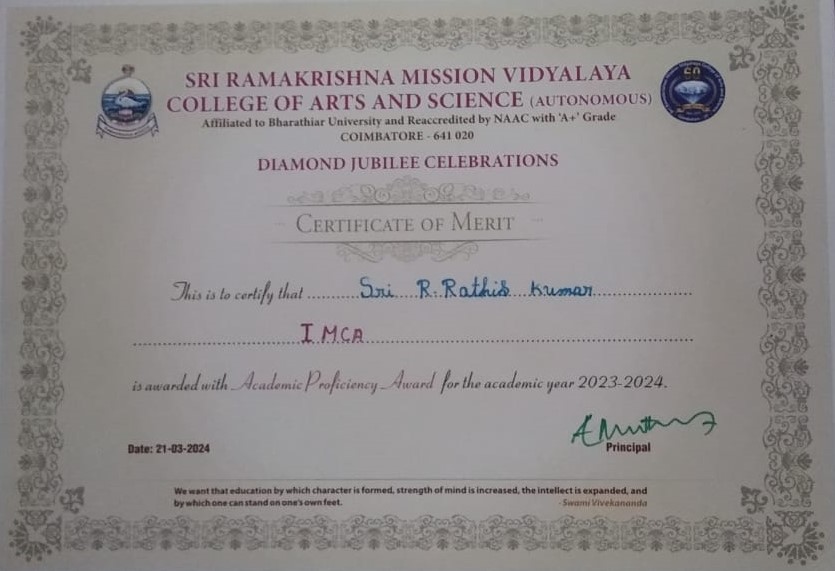 SRI RAMAKRISHNA MISSION VIDYALAYA
COLLEGE OF ARTS AND SCIENCE (AUTONOMOUS)
Affiliated to Bharathiar University and Reaccredited by NAAC with 'A+' Grade
COIMBATORE - 641 020
DIAMOND JUBILEE CELEBRATIONS
CERTIFICATE OF MERIT
This is to certify that Sri R. Rathis Kumar
I MCA
is awarded with Academic Proficiency Award for the academic year 2023-2024.
Date: 21-03-2024
Principal
We want that education by which character is formed, strength of mind is increased, the intellect is expanded, and
by which one can stand on one's own feet.
- Swami Vivekananda